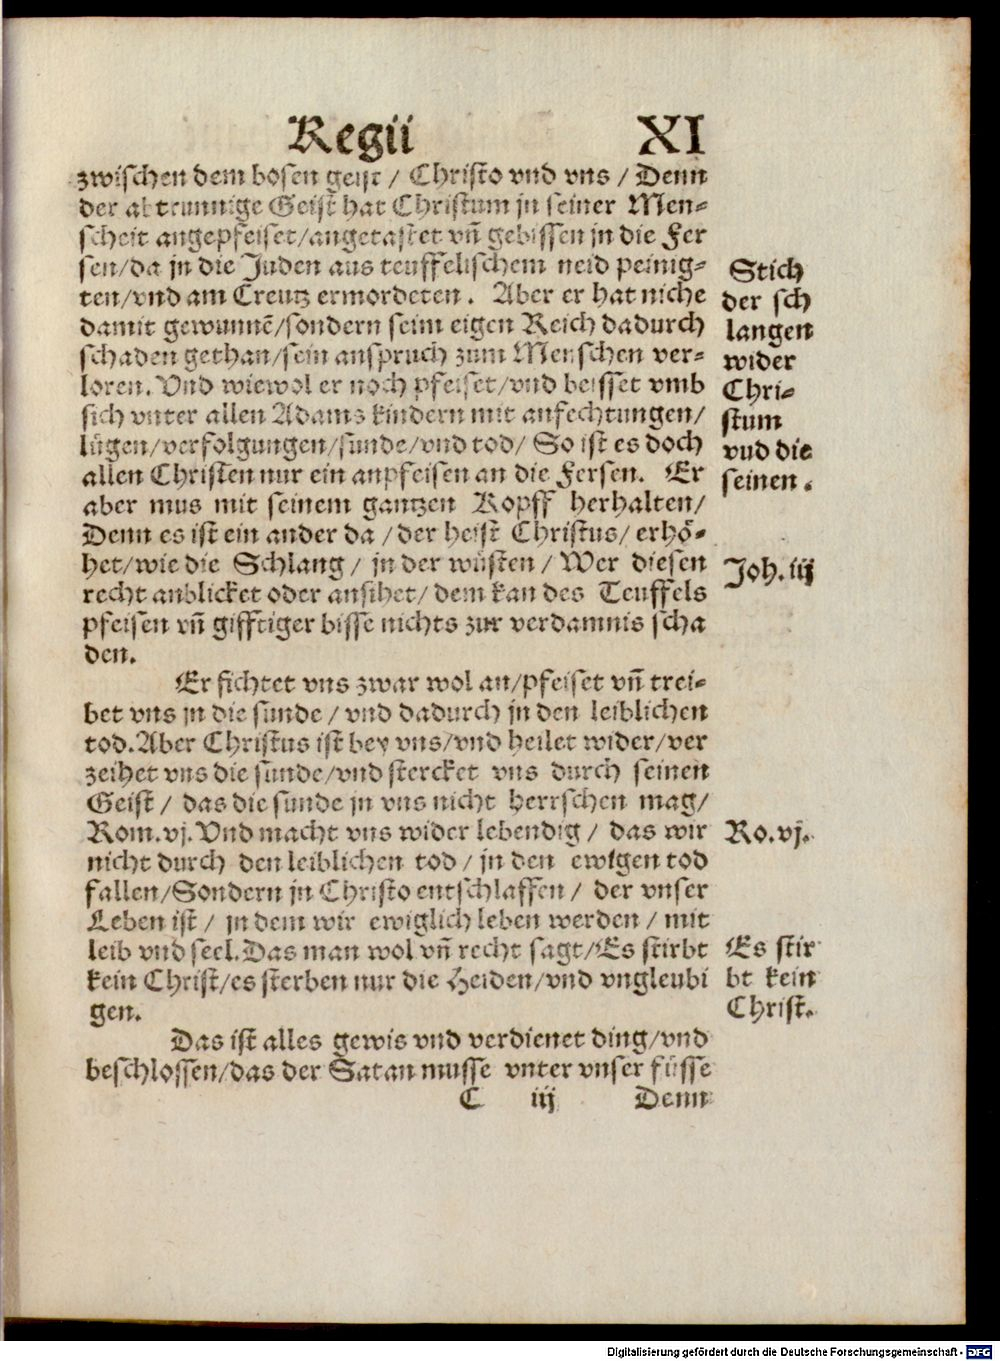 Regii XI
zwischen dem bosen geist / Christo vnd vns / Denn
der abtrunnige Geist hat Christum jn seiner Men-
scheit angepfeiset/angetastet vn̄ gebissen jn die Fer
sen/da jn die Juden aus teuffelischem neid peinig-
ten/vnd am Creutz ermordeten. Aber er hat niche
damit gewunnē/sondern seim eigen Reich dadurch
schaden gethan/sein anspruch zum Menschen ver-
loren. Vnd wiewol er noch pfeiset/vnd beisset vmb
sich vnter allen Adams kindern mit anfechtungen/
lügen/verfolgungen/sunde/vnd tod/ So ist es doch
allen Christen nur ein anpfeisen an die Fersen. Er
aber mus mit seinem gantzen Kopff herhalten/
Denn es ist ein ander da / der heist Christus/ erhö-
het/wie die Schlang / jn der wüsten / Wer diesen
recht anblicket oder ansihet/ dem kan des Teuffels
pfeisen vn̄ gifftiger bisse nichts zur verdamnis scha
den.
Stich
der sch
langen
wider
Chri-
stum
vnd die
seinen.
Joh. iij
Er fichtet vns zwar wol an/pfeiset vn̄ trei-
bet vns jn die sunde / vnd dadurch jn den leiblichen
tod. Aber Christus ist bey vns/vnd heilet wider/ver
zeihet vns die sunde/vnd stercket vns durch seinen
Geist / das die sunde jn vns nicht herrschen mag/
Rom. vj. Vnd macht vns wider lebendig / das wir
nicht durch den leiblichen tod / jn den ewigen tod
fallen/Sondern jn Christo entschlaffen / der vnser
Leben ist / jn dem wir ewiglich leben werden / mit
leib vnd seel. Das man wol vn̄ recht sagt/Es stirbt
kein Christ/es sterben nur die Heiden/vnd vngleubi
gen.
Ro. vj.
Es stir
bt kein
Christ.
Das ist alles gewis vnd verdienet ding/vnd
beschlossen/das der Satan musse vnter vnser füsse
C iij Denn
Digitalisierung gefördert durch die Deutsche Forschungsgemeinschaft - DFG